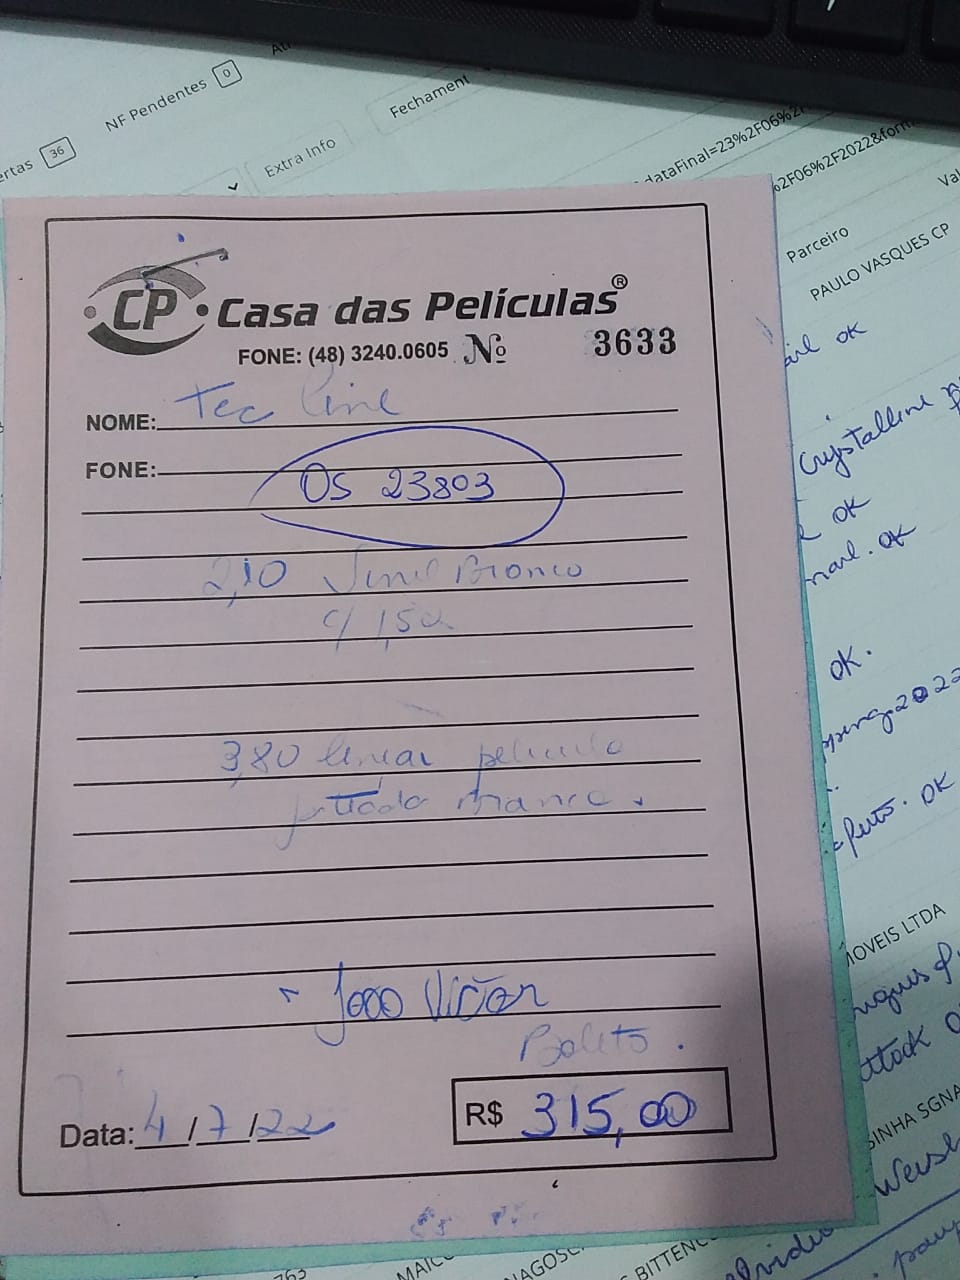 NF Pendentes 0
ertas 36
Extra Info
Fechament
dataFinal=23%2F06%2F
%2F06%2F2022&form
Parceiro
Val
PAULO VASQUES CP
CP Casa das Películas®
FONE: (48) 3240.0605 Nº 3633
NOME: Tec Line
FONE:
OS 23803
2,10 Vinil Branco
c/ 1,52
3,80 linear pelicula
jateado branco.
João Victor
Boleto.
Data: 4/7/22
R$ 315,00
ok
Crystalline
ok
mail. ok
ok.
2022
ok
MOVEIS LTDA
SINHA SGNA
763
MAIC
NAGOSC
BITTENC